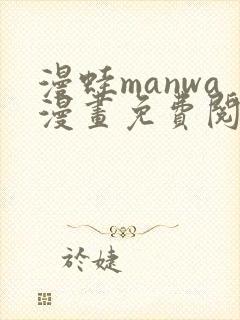 漫蛙manwa
漫畫免費閱
於婕